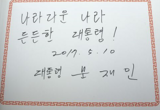 나라다운 나라
든든한 대통령!
2017. 5. 10
대통령 문 재 인